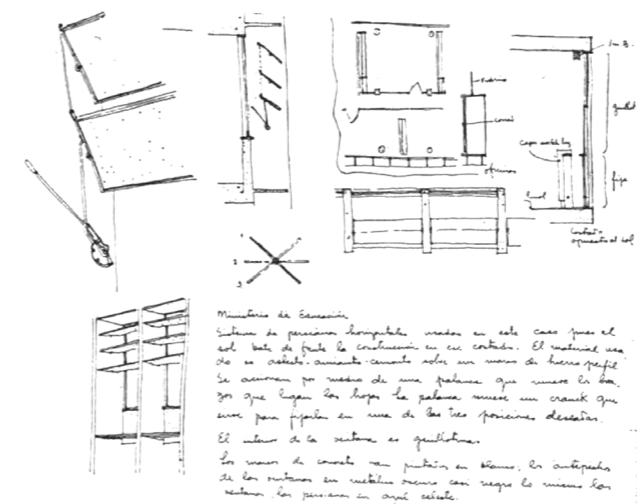 2 m B.
guillot
fijo
oficinas
1
2
3
Costado
opuesto al sol
Ministerio de Educación
Sistema de persianas horizontales usadas en este caso pues el
sol bate de frente la construcción en un costado. El material usa
do es asbesto-amianto-cemento sobre un marco de hierro perfil
Se accionan por medio de una palanca que mueve los bra
zos que ligan las hojas la palanca mueve un cranck que
sirve para fijarlas en una de las tres posiciones deseadas.
El interior de la ventana es guillotinas
Los marcos de concreto van pintados en blanco, los antepechos
de las ventanas en metálico oscuro casi negro lo mismo las
ventanas las persianas en azul celeste.